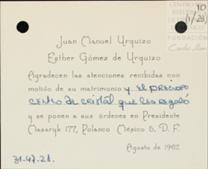 Juan Manuel Urquizo
Esther Gómez de Urquizo
Agradecen las atenciones recibidas con
motivo de su matrimonio y el precioso
centro de cristal que les regaló
y se ponen a sus órdenes en Presidente
Masaryk 177, Polanco México 5, D. F.
Agosto de 1962
31.47.21.